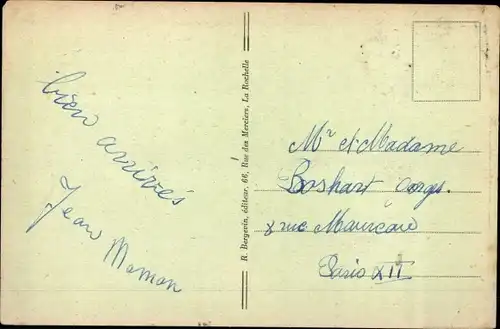 bien arrivés
Jean Maman
R. Bergevin, éditeur, 66, Rue des Merciers, La Rochelle
Mr et Madame
Boshart
8 rue
Paris XII